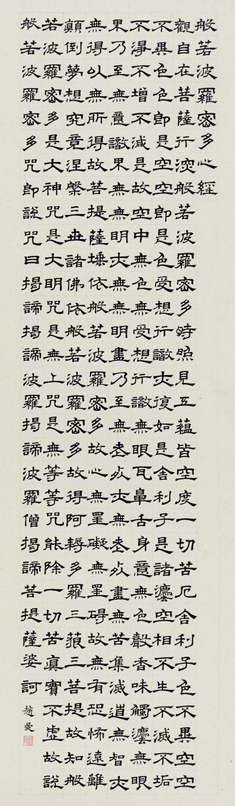 般若波羅密多心經
觀自在菩薩行深般若波羅密多時照見五蘊皆空度一切苦厄舍利子色不異空空
不異色色即是空空即是色受想行識亦復如是舍利子是諸灋空相不生不滅不垢
不淨不增不減是故空中無色無受想行識無眼耳鼻舌身意無色聲香味觸灋無眼
界乃至無意識界無無明亦無無明盡乃至無老死亦無老死盡無苦集滅道無智亦
無得以無所得故菩提薩埵依般若波羅密多故心無罣礙無罣礙故無有恐怖遠離
顛倒夢想究竟涅槃三世諸佛依般若波羅密多故得阿耨多羅三藐三菩提故知般
若波羅密多是大神咒是大明咒是無上咒是無等等咒能除一切苦真實不虛故說
般若波羅密多咒即說咒曰揭諦揭諦波羅揭諦波羅僧揭諦菩提薩婆訶